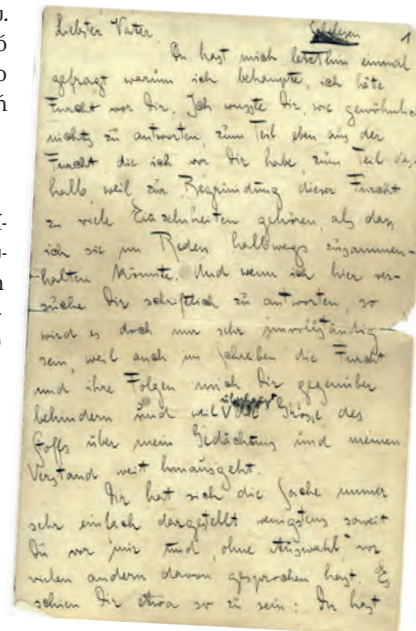 Liebster Vater, 1
Du hast mich letzthin einmal
gefragt warum ich behaupte, ich hätte
Furcht vor Dir. Ich wusste Dir, wie gewöhnlich
nichts zu antworten, zum Teil eben aus der
Furcht die ich vor Dir habe, zum Teil des-
halb, weil zur Begründung dieser Furcht
zu viele Einzelnheiten gehören, als dass
ich sie im Reden halbwegs zusammen-
halten könnte. Und wenn ich hier ver-
suche Dir schriftlich zu antworten, so
wird es doch nur sehr unvollständig
sein, weil auch im Schreiben die Furcht
und ihre Folgen mich Dir gegenüber
behindern und weil überhaupt die Grösse des
Stoffs über mein Gedächtnis und meinen
Verstand weit hinausgeht.
Dir hat sich die Sache immer
sehr einfach dargestellt wenigstens soweit
Du vor mir und, ohne Auswahl, vor
vielen andern davon gesprochen hast. Es
schien Dir etwa so zu sein: Du hast